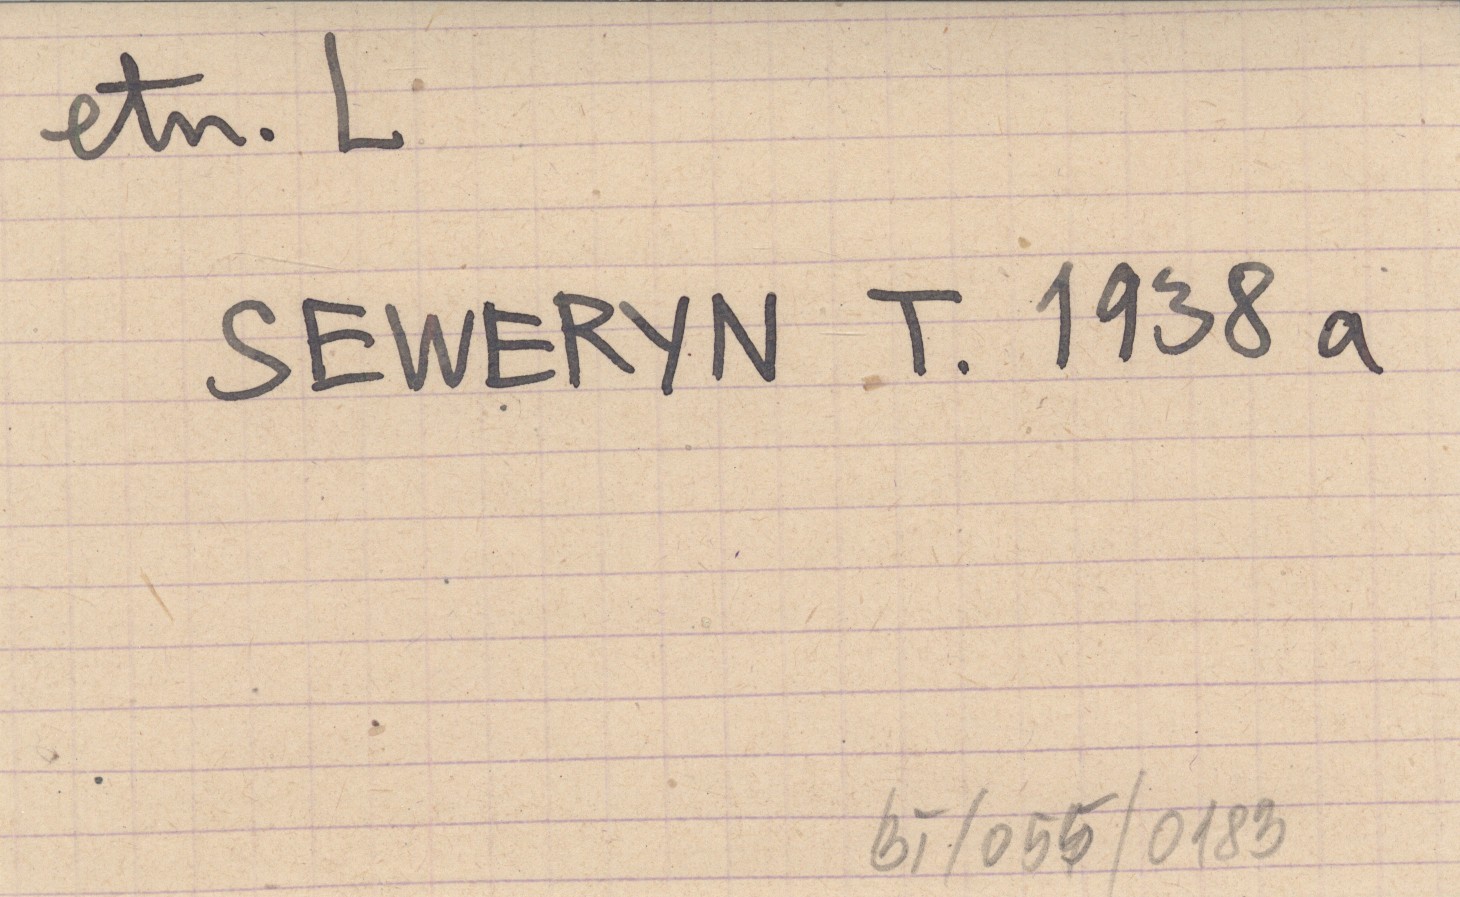 etn. L
SEWERYN T. 1938 a
bI/055/0183